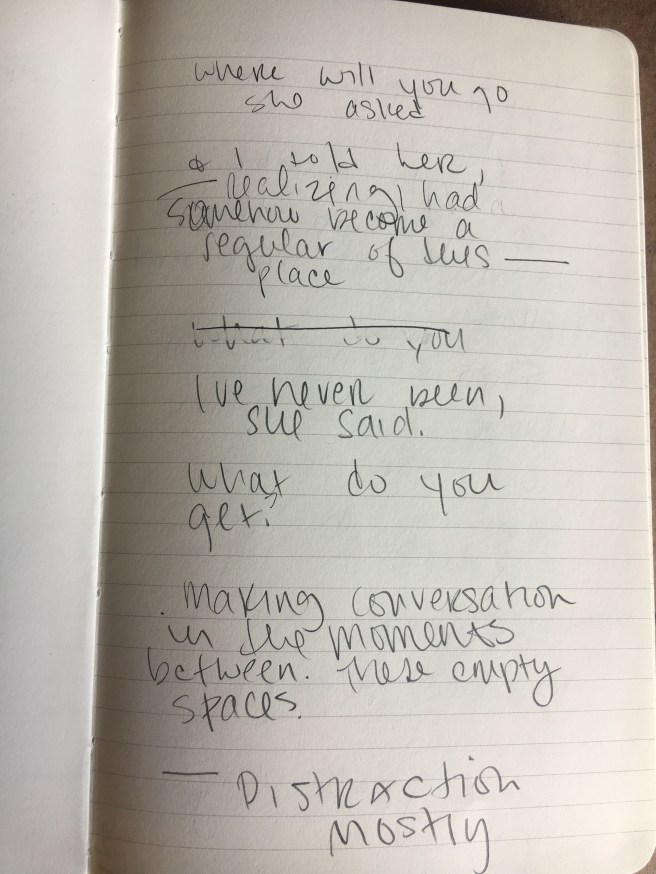 where will you go
she asked
& I told her,
— realizing I had
somehow become a
regular of this —
place
what do you
I've never been,
she said.
What do you
get?
. Making conversation
in the moments
between. These empty
spaces.
— Distraction
Mostly